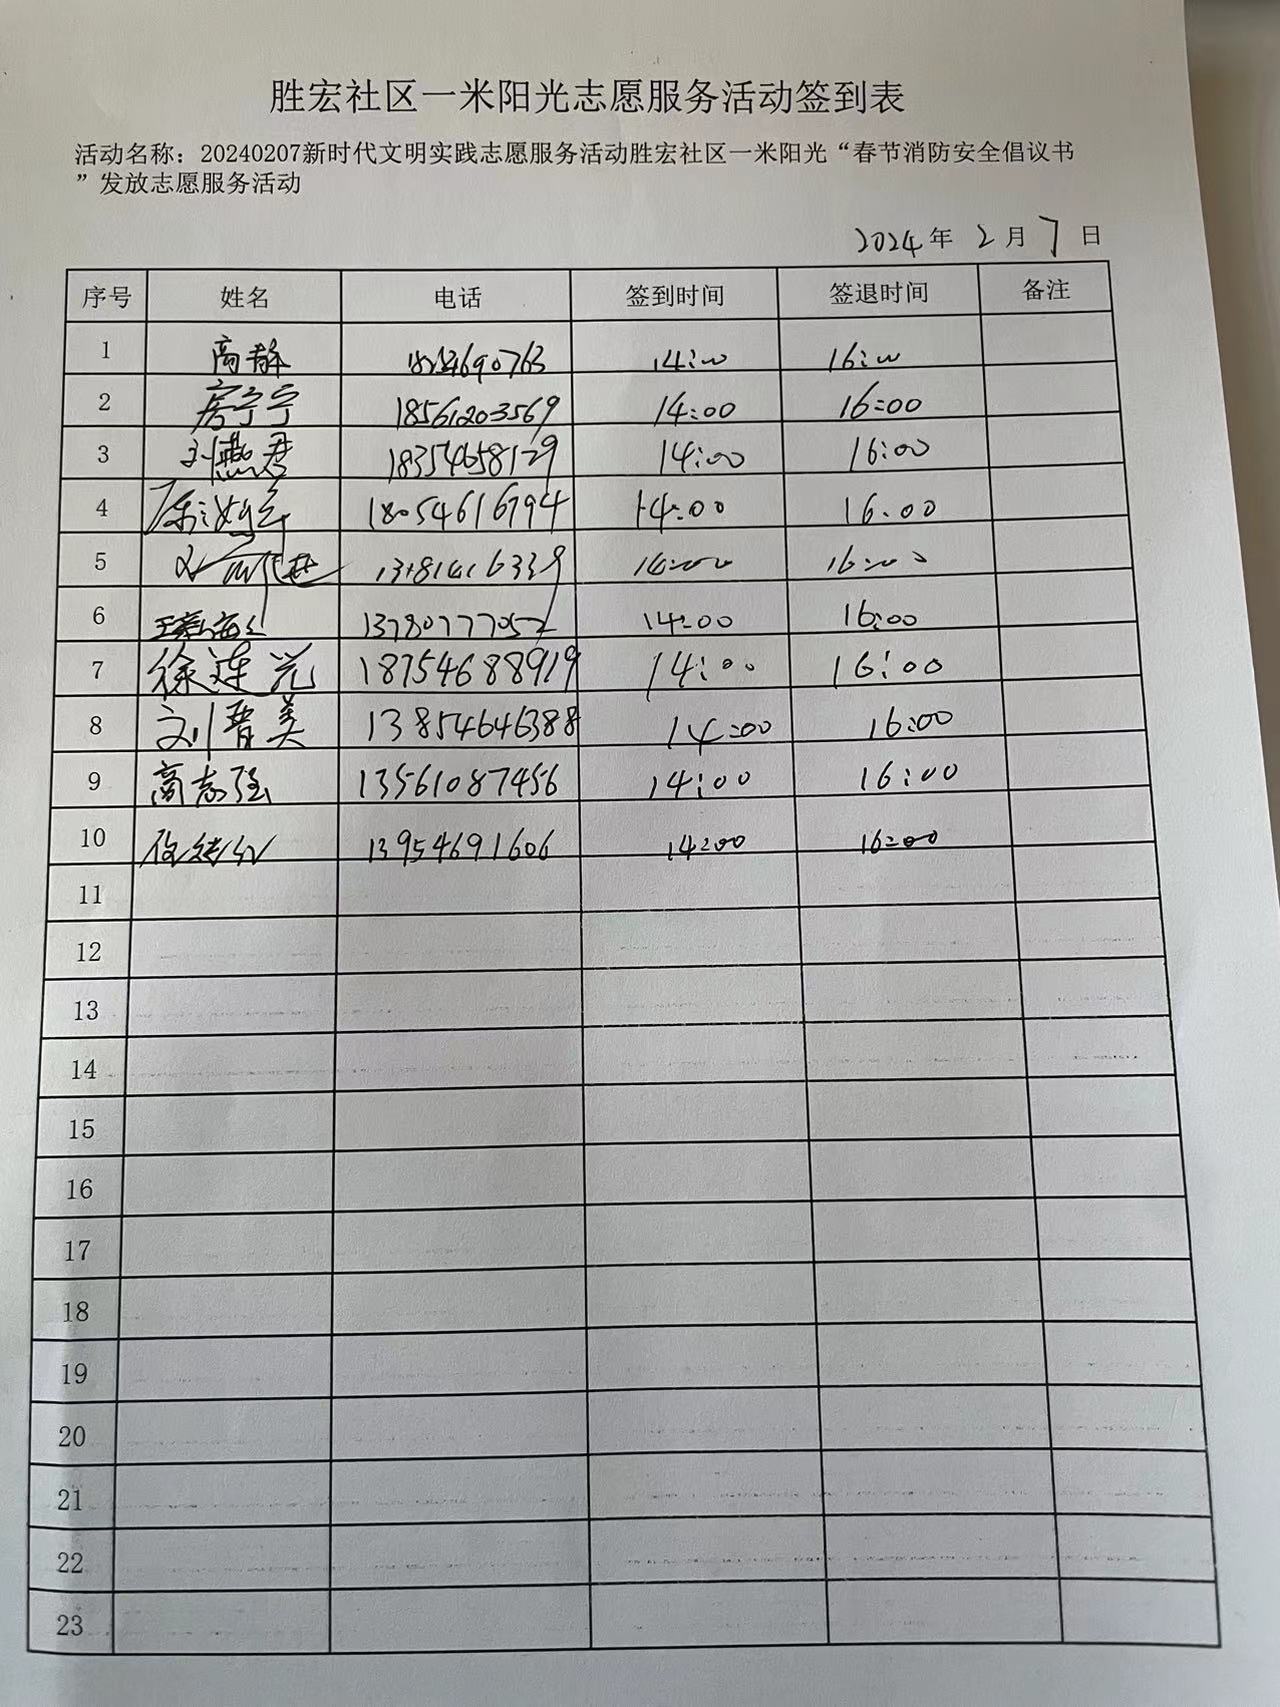 胜宏社区一米阳光志愿服务活动签到表
活动名称：20240207新时代文明实践志愿服务活动胜宏社区一米阳光“春节消防安全倡议书
”发放志愿服务活动
2024年 2月 7日
序号 姓名 电话 签到时间 签退时间 备注
1 高静 14:00 16:00
2 房宁宁 18561203569 14:00 16:00
3 刘燕君 18354658129 14:00 16:00
4 18054616794 14:00 16:00
5 14:00 16:00
6 13780777052 14:00 16:00
7 徐连光 18754688919 14:00 16:00
8 刘晋美 13854646388 14:00 16:00
9 高志强 13561087456 14:00 16:00
10 13954691606 14:00 16:00
11
12
13
14
15
16
17
18
19
20
21
22
23